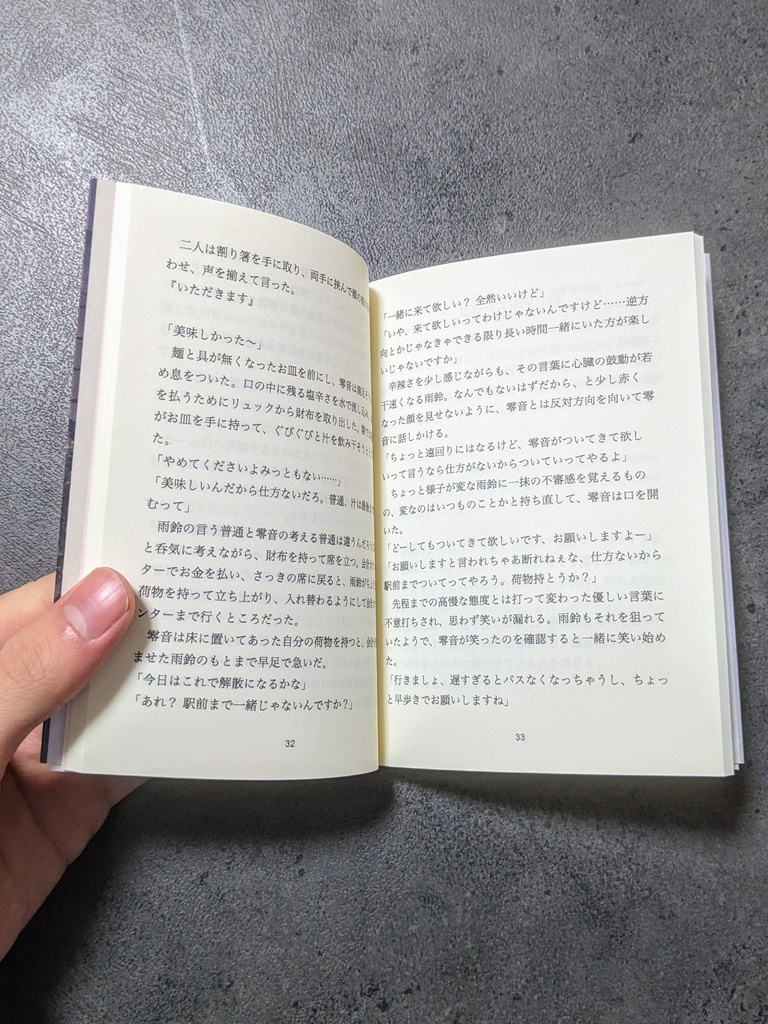 二人は割り箸を手に取り、両手に挟んで顔の前に
わせ、声を揃えて言った。
『いただきます』
「美味しかった〜」
麺と具が無くなったお皿を前にし、零音は満足そ
め息をついた。口の中に残る塩辛さを水で流し込み、
を払うためにリュックから財布を取り出した。隣では
がお皿を手に持って、ぐびぐびと汁を飲み干そうとし
た。
「やめてくださいよみっともない……」
「美味しいんだから仕方ないだろ。普通、汁は最後まで
むって」
雨鈴の言う普通と零音の考える普通は違うんだろうな
と呑気に考えながら、財布を持って席を立つ。会計カウン
ターでお金を払い、さっきの席に戻ると、雨鈴がちょうど
荷物を持って立ち上がり、入れ替わるようにして会計カウ
ンターまで行くところだった。
零音は床に置いてあった自分の荷物を持つと、会計を済
ませた雨鈴のもとまで早足で急いだ。
「今日はこれで解散になるかな」
「あれ? 駅前まで一緒じゃないんですか?」
32
「一緒に来て欲しい? 全然いいけど」
「いや、来て欲しいってわけじゃないんですけど……逆方
向とかじゃなきゃできる限り長い時間一緒にいた方が楽し
いじゃないですか」
辛辣さを少し感じながらも、その言葉に心臓の鼓動が若
干速くなる雨鈴。なんでもないはずだから、と少し赤く
なった顔を見せないように、零音とは反対方向を向いて零
音に話しかける。
「ちょっと遠回りにはなるけど、零音がついてきて欲し
いって言うなら仕方がないからついていってやるよ」
ちょっと様子が変な雨鈴に一抹の不審感を覚えるもの
の、変なのはいつものことかと持ち直して、零音は口を開
いた。
「どーしてもついてきて欲しいです、お願いしますよー」
「お願いしますと言われちゃあ断れねぇな、仕方ないから
駅前までついてってやろう。荷物持とうか?」
先程までの高慢な態度とは打って変わった優しい言葉に
不意打ちされ、思わず笑いが漏れる。雨鈴もそれを狙って
いたようで、零音が笑ったのを確認すると一緒に笑い始め
た。
「行きましょ、遅すぎるとバスなくなっちゃうし、ちょっ
と早歩きでお願いしますね」
33